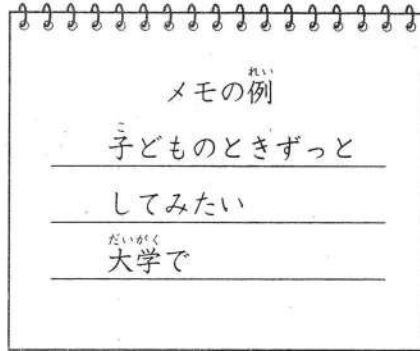 メモの例
れい
子どものときずっと
こ
してみたい
大学で
だいがく